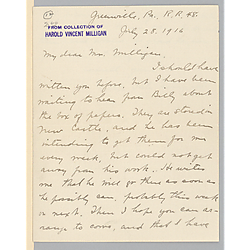 Greenville, Pa. R.R. 48.
FROM COLLECTION OF
HAROLD VINCENT MILLIGAN
July 28, 1916
My dear Mr. Milligan,
I should have
written you before, but I have been
waiting to hear from Billy about
the box of papers. They are stored in
New Castle, and he has been
intending to get them for me
every week, but could not get
away from his work. He writes
me that he will go there as soon as
he possibly can, probably this week
or next. Then I hope you can ar-
range to come, and that I have